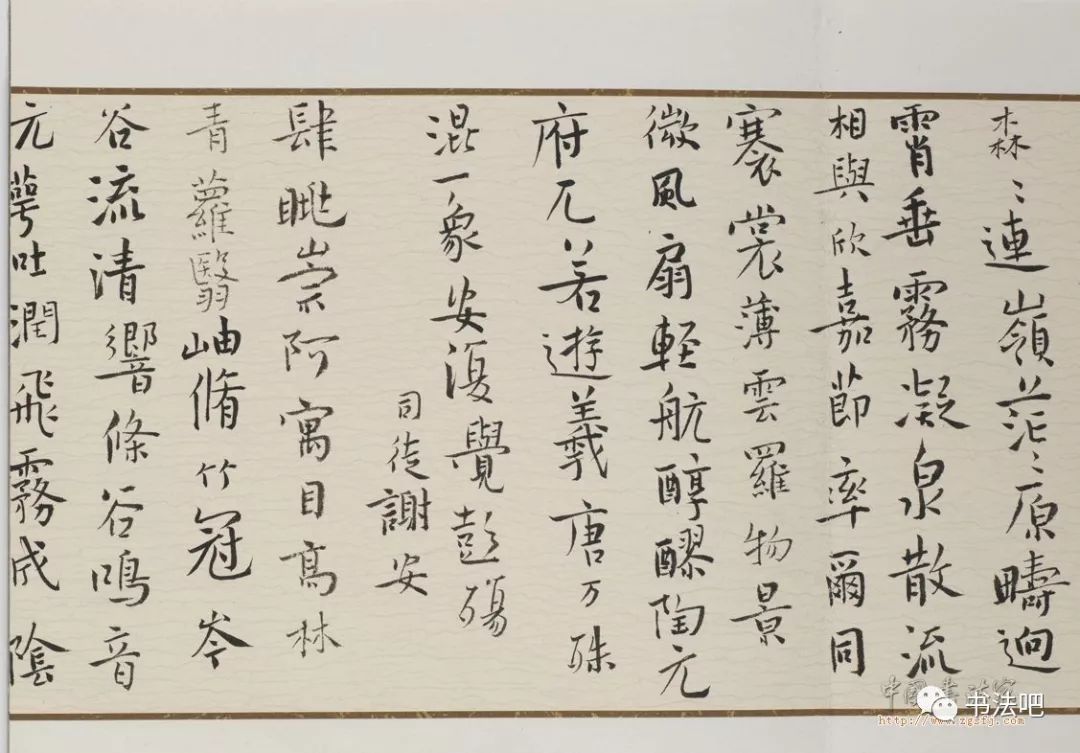 森〻連嶺茫〻原疇逈
霄垂霧凝泉散流
相與欣嘉節率爾同
褰裳薄雲羅物景
微風扇輕航醇醪陶元
府兀若遊羲唐万殊
混一象安復覺彭殤
司徒謝安
肆眺崇阿寓目高林
青蘿翳岫脩竹冠岑
谷流清響條谷鳴音
元萼吐潤飛霧成陰
书法吧
http://www.zgsfj.com